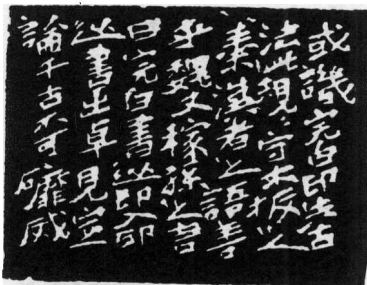 或譏完白印失古
法此規〻守木板之
秦漢者之語善
乎魏丈稼孫之言
曰完白書从印入印
从書出卓見定
論千古不可磨滅